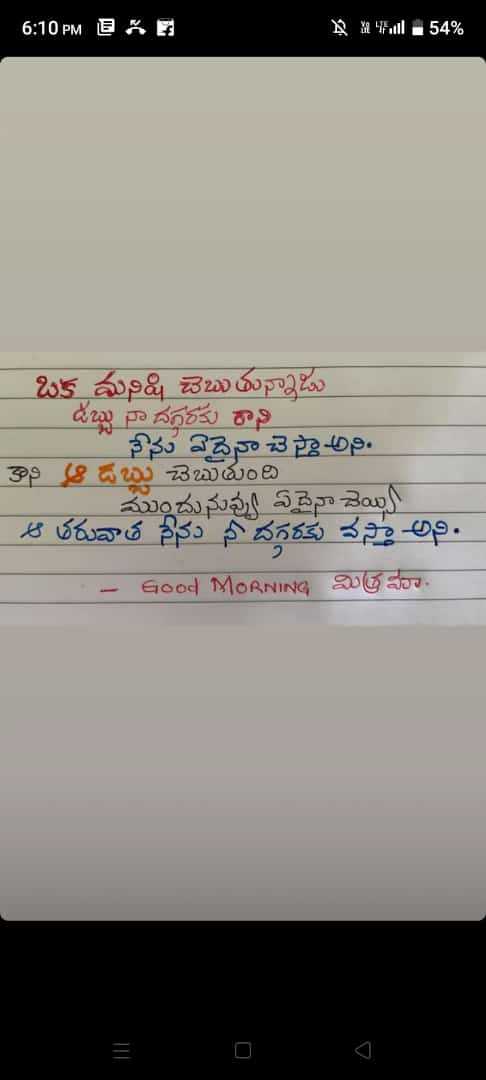 6:10 PM 54%
ఒక మనిషి చెబుతున్నాడు
డబ్బు నా దగ్గరకు రాని
నేను ఏదైనా చేస్తా అని.
కాని ఆ డబ్బు చెబుతుంది
ముందు నువ్వు ఏదైనా చెయ్యి
ఆ తరువాత నేను నీ దగ్గరకు వస్తా అని.
- GOOd MORNING మిత్రమా.